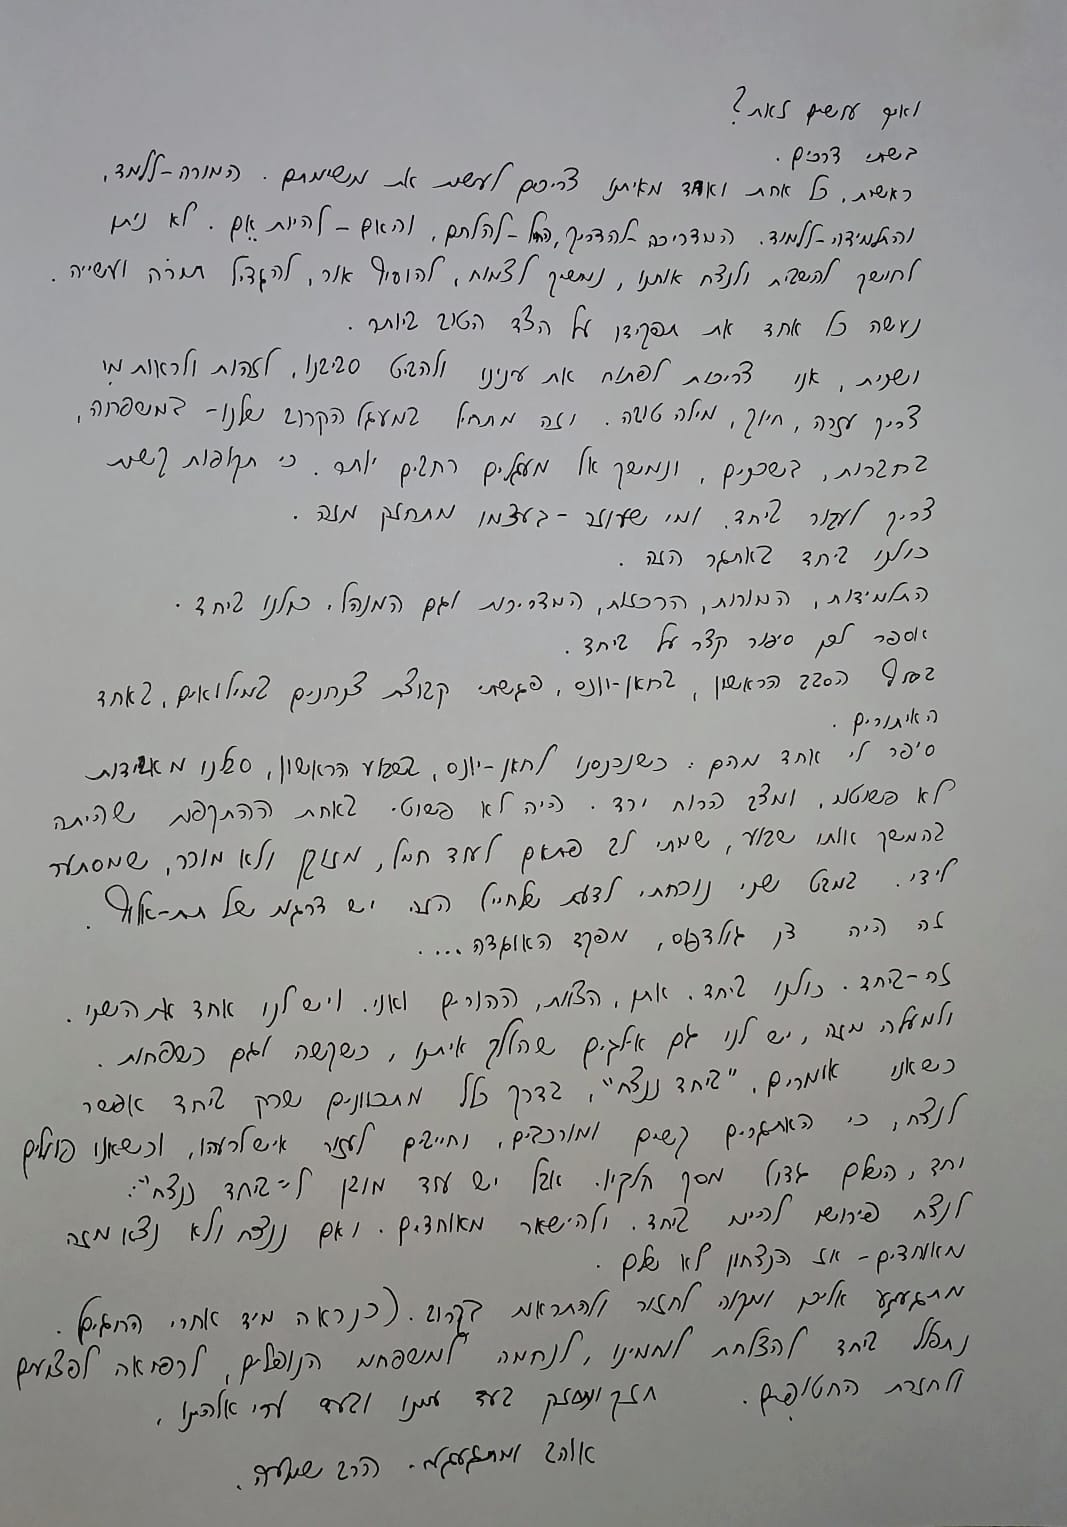 ואיך עושים זאת?
בשתי דרכים.
ראשית, כל אחת ואחד מאיתנו צריכים לעשות את משימתם. המורה - ללמד,
והתלמידה - ללמוד. המדריכה - להדריך, החייל - להלחם, והאם - להיות אֵם. לא ניתן
לחושך להשבית ולנצח אותנו, נמשיך לצמוח, להוסיף אור, להגדיל תורה ועשייה.
נעשה כל אחד את תפקידו על הצד הטוב ביותר.
ושנית, אנו צריכות לפתוח את עינינו ולהביט סביבנו, לזהות ולראות מי
צריך עזרה, חיוך, מילה טובה. וזה מתחיל במעגל הקרוב שלנו - במשפחה,
בחברות, בשכנים, ונמשך אל מעגלים רחבים יותר. כי תקופות קשות
צריך לעבור ביחד. ומי שעוזר - בעצמו מתחזק מזה.
כולנו ביחד באתגר הזה.
התלמידות, המורות, הרכזות, המדריכות וגם המנהל. כולנו ביחד.
אספר לכן סיפור קצר על ביחד.
בסוף הסבב הראשון, בחאן-יונס, פגשתי קבוצת צנחנים במילואים, באחד
האיתורים.
סיפר לי אחד מהם: כשנכנסנו לחאן-יונס, בשבוע הראשון, סבלנו מאבידות
לא פשוטות, ומצב הרוח ירד. היה לא פשוט. באחת ההתקפות שהיתה
בהמשך אותו שבוע, שמתי לב פתאם לעוד חייל, מזוקן ולא מוכר, שמסתער
לידי. במבט שני נוכחתי לדעת שלחייל הזה יש דרגות של תת-אלוף.
זה היה דן גולדפוס, מפקד האוגדה....
זה - ביחד. כולנו ביחד. אתן, הצוות, ההורים ואני. ויש לנו אחד את השני.
ולמעלה מזה, יש לנו גם אלקים שהולך איתנו, כשקשה וגם כשפחות.
כשאנו אומרים, "ביחד ננצח", בדרך כלל מתכוונים שרק ביחד אפשר
לנצח, כי האתגרים קשים ומורכבים, וחייבים לעזור איש לרעהו, וכשאנו פועלים
יחד, השלם גדול מסך חלקיו. אבל יש עוד מובן ל"ביחד ננצח":
לנצח פירושו להיות ביחד. ולהישאר מאוחדים. ואם ננצח ולא נצא מזה
מאוחדים - אז הנצחון לא שלם.
מתגעגע אליכן ומקוה לחזור ולהתראות בקרוב. (כנראה מיד אחרי החגים).
נתפלל ביחד להצלחת לוחמינו, לנחמה למשפחות הנופלים, לרפואה לפצועים
ולחזרת החטופים. חזק ונתחזק בעד עמנו ובעד ערי אלהינו,
אוהב ומתגעגע. הרב